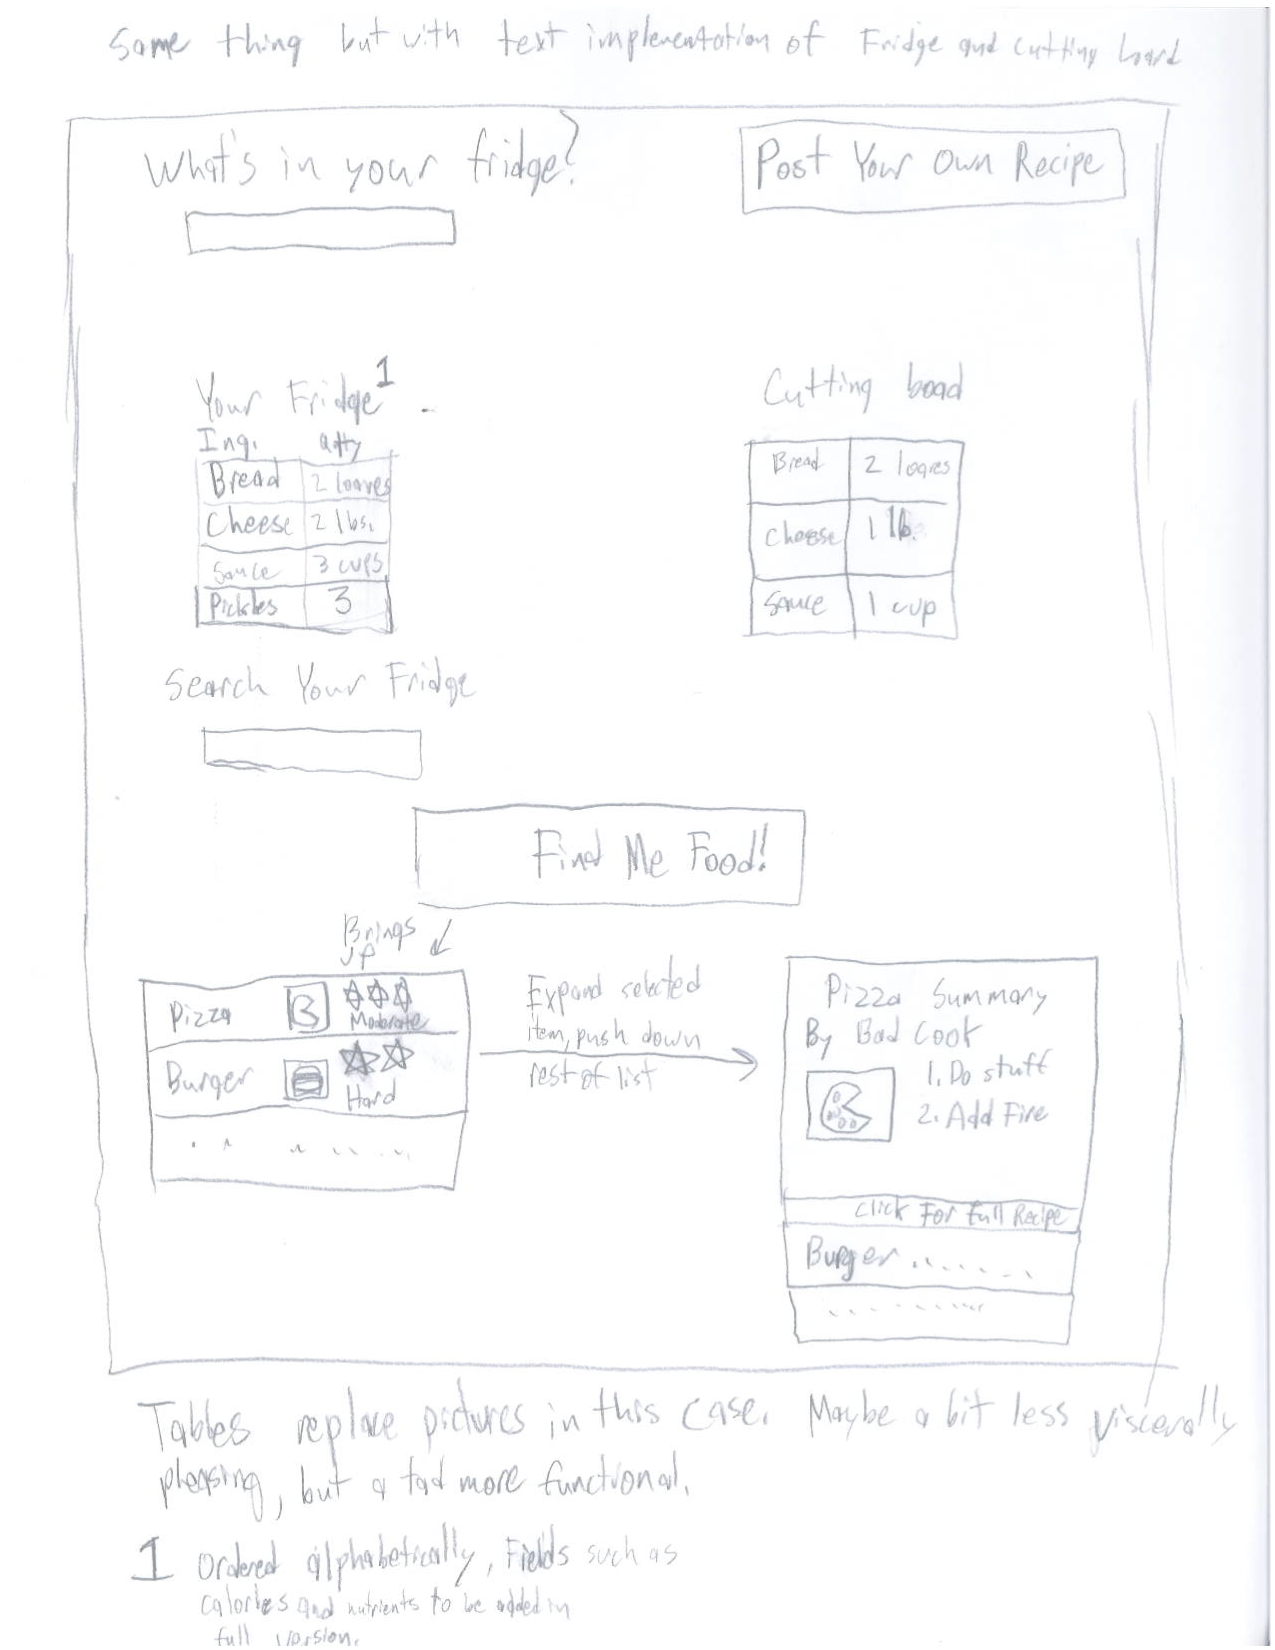 Same thing but with text implementation of Fridge and cutting board
What's in your fridge?
Post Your Own Recipe
Your Fridge 1
Ing. Qtty
Bread 2 loaves
Cheese 2 lbs.
Sauce 3 cups
Pickles 3
Cutting boad
Bread 2 loaves
Cheese 1 lb.
Sauce 1 cup
Search Your Fridge
Find Me Food!
Brings
up
Pizza
Moderate
Burger
Hard
Expand selected
item, push down
rest of list
Pizza Summary
By Bad Cook
1. Do stuff
2. Add Fire
Click For Full Recipe
Burger
Tables replace pictures in this case. Maybe a bit less viscerally
pleasing, but a tad more functional.
1 Ordered alphabetically, Fields such as
calories and nutrients to be added in
full version.